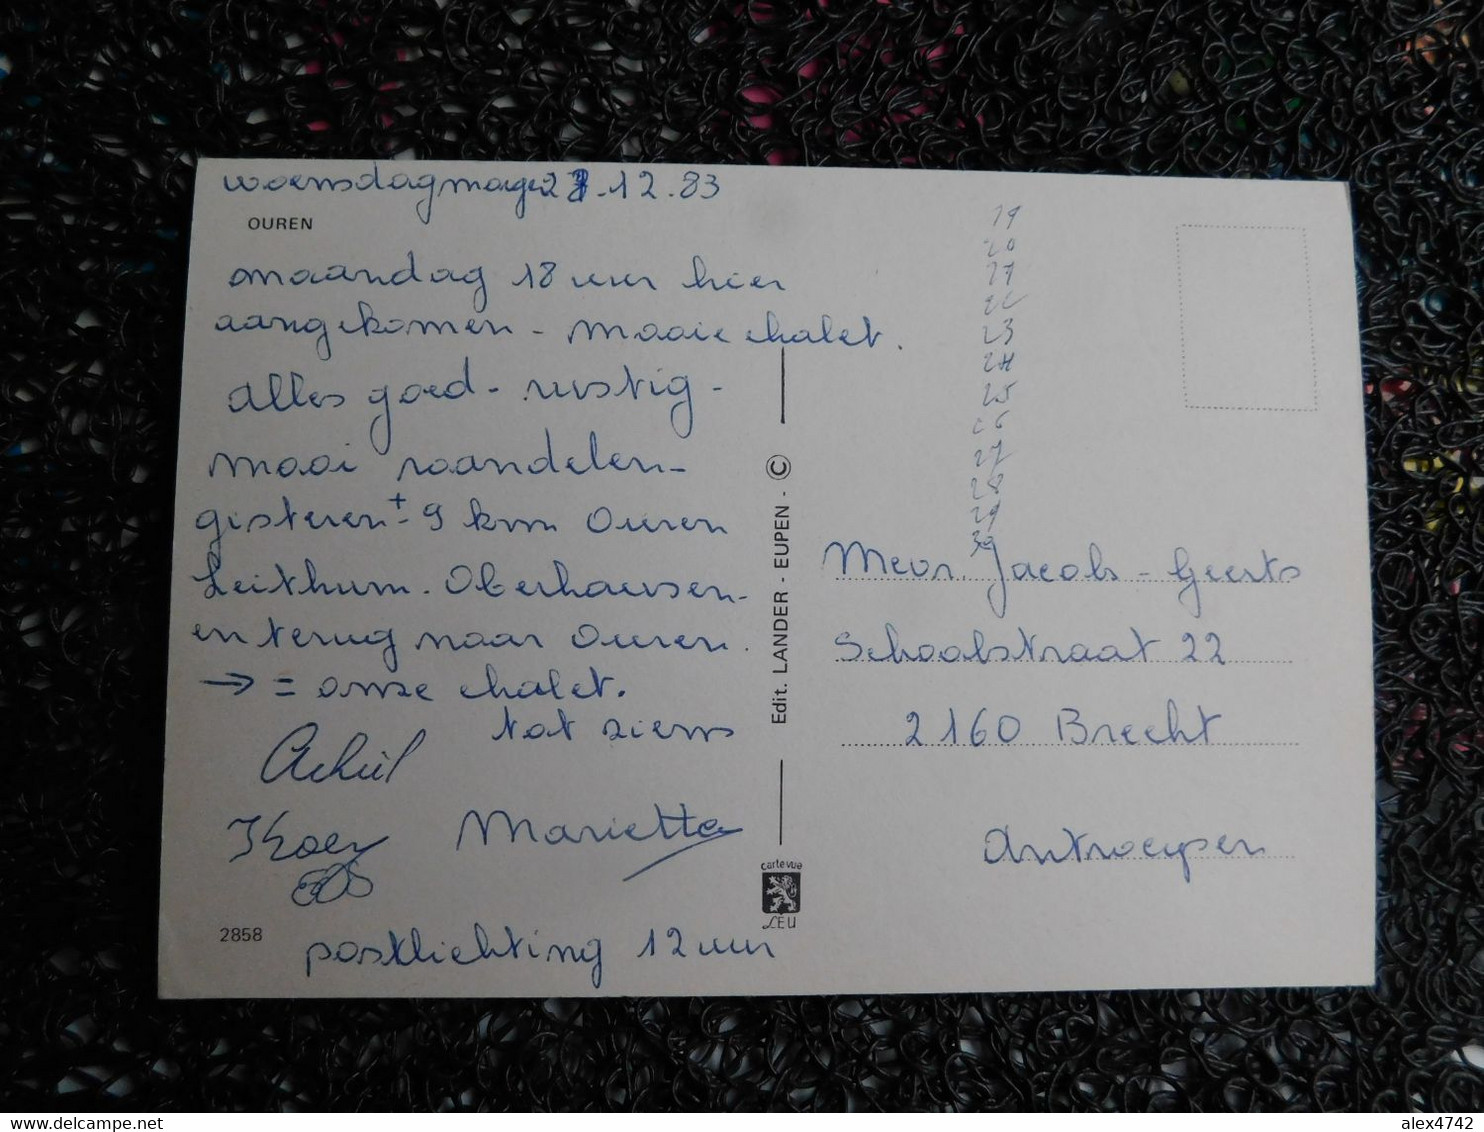 woensdagmorgen 28.12.83
OUREN
maandag 18 uur hier
aangekomen - mooie chalet.
alles goed - rustig -
mooi wandelen -
gisteren ± 9 km Ouren
Leithum - Oberhausen -
en terug naar Ouren.
→ = onze chalet.
tot ziens
Achiel
Marietta
2858
postlichting 12 uur
Edit. LANDER - EUPEN - ©
carte vue
LEU
19
20
21
22
23
24
25
26
27
28
29
30
Mevr. Jacobs - Geerts
Schoolstraat 22
2160 Brecht
Antwerpen
delcampe.net
alex4742